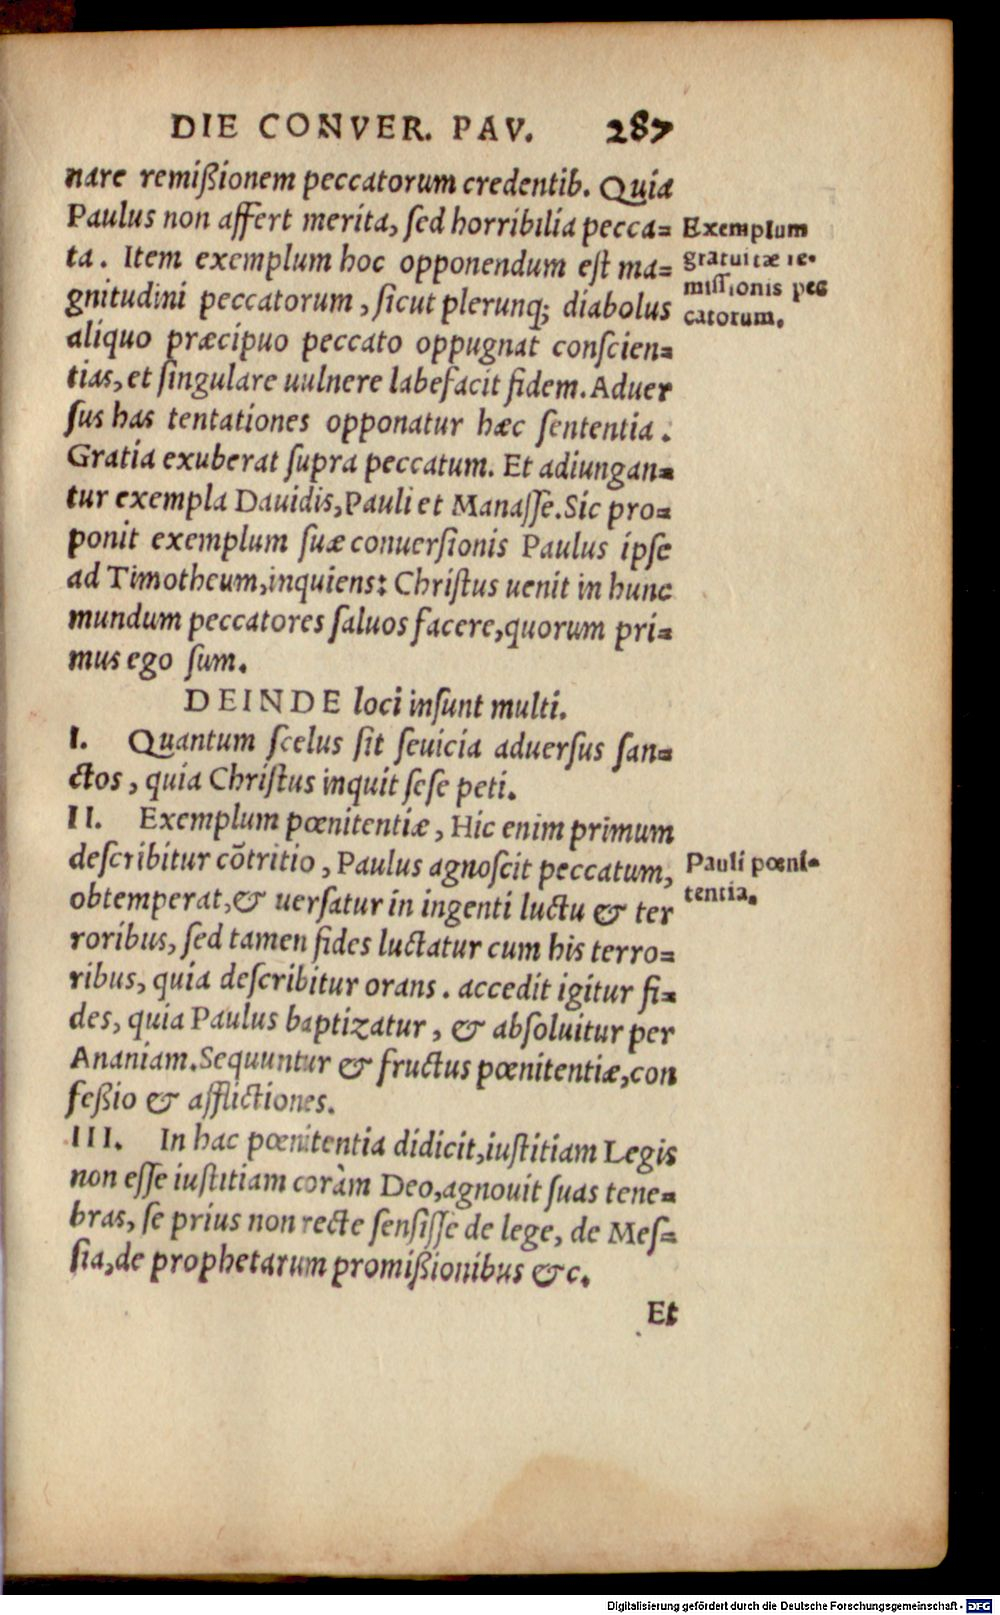 DIE CONVER. PAV. 287
nare remißionem peccatorum credentib. Quia
Paulus non affert merita, ſed horribilia pecca=
ta. Item exemplum hoc opponendum eſt ma=
gnitudini peccatorum, ſicut plerunq; diabolus
aliquo præcipuo peccato oppugnat conſcien=
tias, et ſingulare uulnere labefacit fidem. Aduer
ſus has tentationes opponatur hæc ſententia.
Gratia exuberat ſupra peccatum. Et adiungan=
tur exempla Dauidis, Pauli et Manaſſe. Sic pro=
ponit exemplum ſuæ conuerſionis Paulus ipſe
ad Timotheum, inquiens: Chriſtus uenit in hunc
mundum peccatores ſaluos facere, quorum pri=
mus ego ſum.
Exemplum
gratuitæ re=
miſſionis pec
catorum.
DEINDE loci inſunt multi.
I. Quantum ſcelus ſit ſeuicia aduerſus ſan=
ctos, quia Chriſtus inquit ſeſe peti.
II. Exemplum pœnitentiæ, Hic enim primum
deſcribitur cõtritio, Paulus agnoſcit peccatum,
obtemperat, & uerſatur in ingenti luctu & ter
roribus, ſed tamen fides luctatur cum his terro=
ribus, quia deſcribitur orans. accedit igitur fi=
des, quia Paulus baptizatur, & abſoluitur per
Ananiam. Sequuntur & fructus pœnitentiæ, con
feßio & afflictiones.
Pauli pœni=
tentia.
III. In hac pœnitentia didicit, iuſtitiam Legis
non eſſe iuſtitiam coràm Deo, agnouit ſuas tene=
bras, ſe prius non recte ſenſiſſe de lege, de Meſ=
ſia, de prophetarum promißionibus &c.
Et
Digitalisierung gefördert durch die Deutsche Forschungsgemeinschaft - DFG